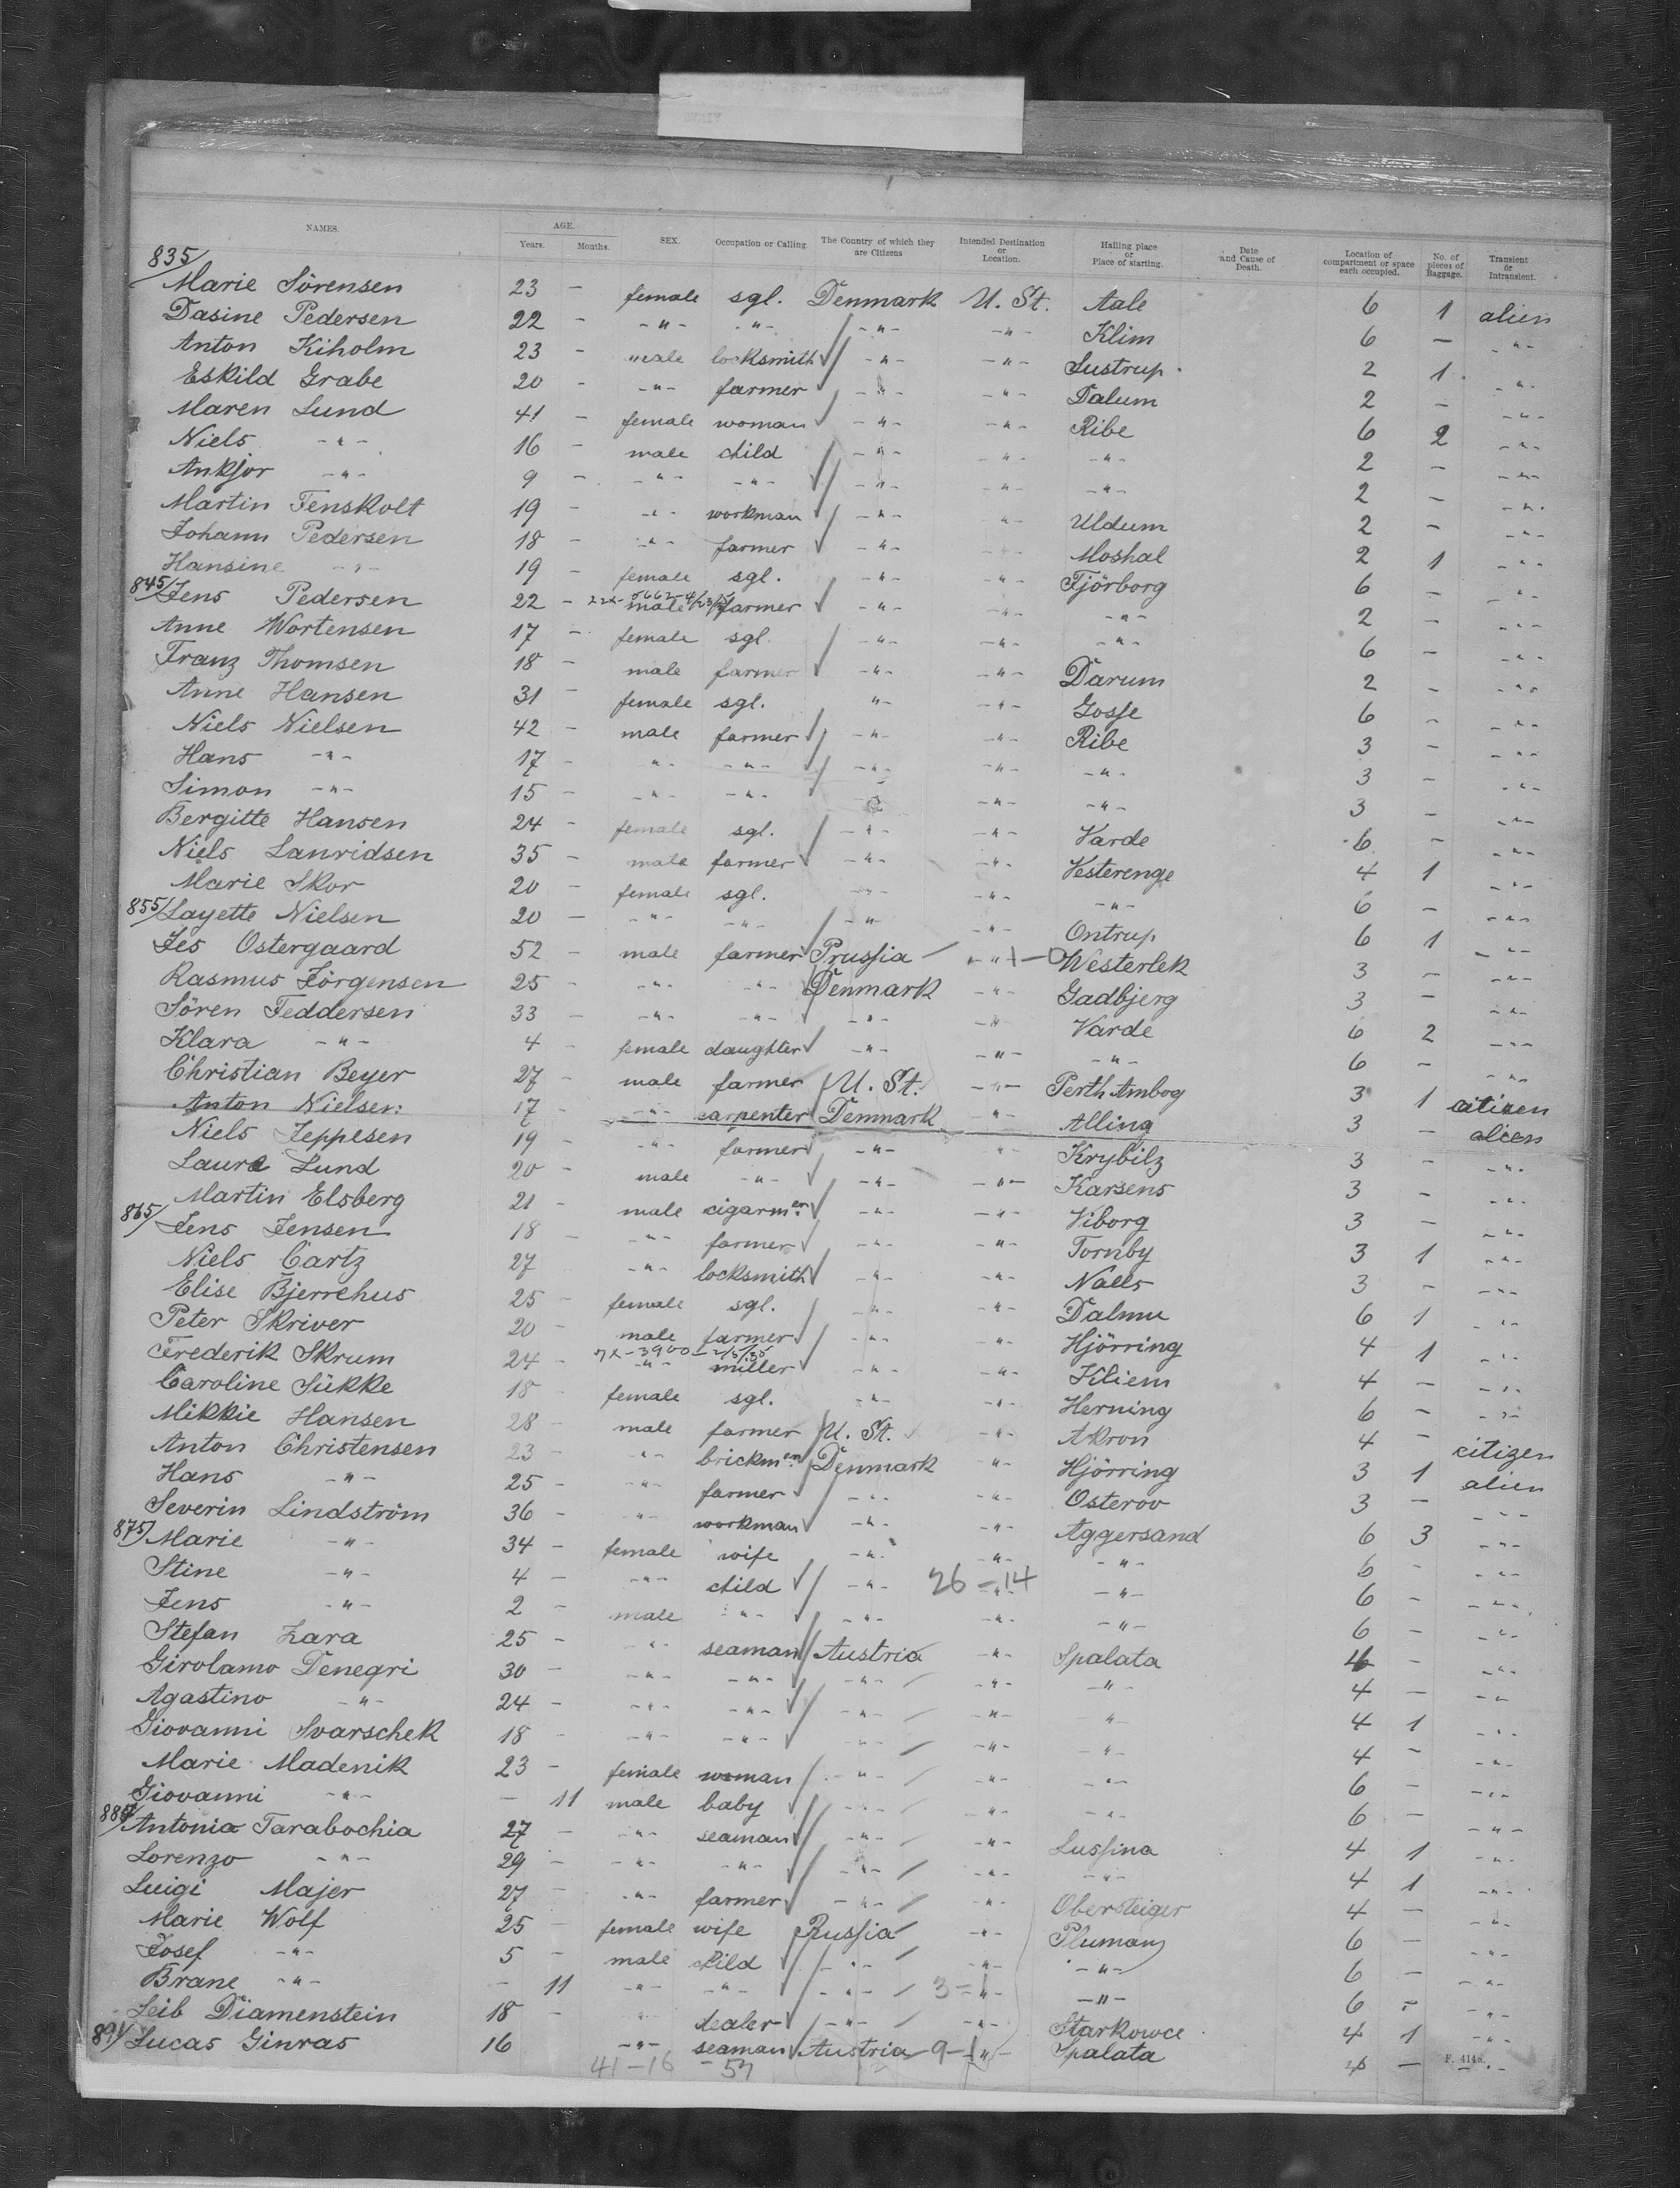 NAMES. AGE. Years. Months. SEX. Occupation or Calling. The Country of which they are Citizens Intended Destination or Location. Hailing place or Place of starting. Date and Cause of Death. Location of compartment or space each occupied. No. of pieces of Baggage. Transient or Intransient.
835/
Marie Sörensen 23 - female sgl. Denmark U. St. Aale 6 1 alien
Dasine Pedersen 22 - -"- -"- -"- -"- Klim 6 - -"-
Anton Kiholm 23 - male locksmith -"- -"- Sustrup 2 1 -"-
Eskild Grabe 20 - -"- farmer -"- -"- Dalum 2 - -"-
Maren Lund 41 - female woman -"- -"- Ribe 6 2 -"-
Niels -"- 16 - male child -"- -"- -"- 2 - -"-
Ankjor -"- 9 - -"- -"- -"- -"- -"- 2 - -"-
Martin Fenskolt 19 - -"- workman -"- -"- Uldum 2 - -"-
Johann Pedersen 18 - -"- farmer -"- Moshal 2 1 -"-
Hansine -"- 19 - female sgl. -"- -"- Fjörborg 6 - -"-
845/ Jens Pedersen 22 - male farmer -"- -"- -"- 2 - -"-
Anne Wortensen 17 - female sgl. -"- -"- -"- 6 - -"-
Franz Thomsen 18 - male farmer -"- -"- Darum 2 - -"-
Anne Hansen 31 - female sgl. -"- -"- Gosse 6 - -"-
Niels Nielsen 42 - male farmer -"- -"- Ribe 3 - -"-
Hans -"- 17 - -"- -"- -"- -"- -"- 3 - -"-
Simon -"- 15 - -"- -"- -"- -"- -"- 3 - -"-
Bergitte Hansen 24 - female sgl. -"- -"- Varde 6 - -"-
Niels Lauridsen 35 - male farmer -"- -"- Vesterenge 4 1 -"-
Marie Skor 20 - female sgl. -"- -"- -"- 6 - -"-
855/ Layette Nielsen 20 - -"- -"- -"- -"- Ontrup 6 1 -"-
Jes Ostergaard 52 - male farmer Prussia -"- Westerlek 3 - -"-
Rasmus Jörgensen 25 - -"- -"- Denmark -"- Gadbjerg 3 - -"-
Sören Feddersen 33 - -"- -"- -"- -"- Varde 6 2 -"-
Klara -"- 4 - female daughter -"- -"- -"- 6 - -"-
Christian Beyer 27 - male farmer U. St. -"- Perth Ambog 3 1 citizen
Anton Nielsen 17 - -"- carpenter Denmark -"- Alling 3 - alien
Niels Jeppesen 19 - -"- farmer -"- -"- Krybilz 3 - -"-
Laura Lund 20 - male -"- -"- -"- Karsens 3 - -"-
Martin Elsberg 21 - male cigarmer -"- -"- Viborg 3 - -"-
865/ Jens Jensen 18 - -"- farmer -"- -"- Tornby 3 1 -"-
Niels Cartz 27 -"- locksmith -"- -"- Nalls 3 - -"-
Elise Bjerrehus 25 - female sgl. -"- -"- Dalmu 6 1 -"-
Peter Skriver 20 - male farmer -"- -"- Hjörring 4 1 -"-
Frederik Skrum 24 - -"- miller -"- -"- Kliem 4 - -"-
Caroline Sükke 18 - female sgl. -"- -"- Herning 6 - -"-
Mikkie Hansen 28 - male farmer U. St. -"- Akron 4 - citizen
Anton Christensen 23 - -"- brickmer Denmark -"- Hjörring 3 1 alien
Hans -"- 25 - -"- farmer -"- -"- Osterov 3 - -"-
Severin Lindström 36 - -"- workman -"- -"- Aggersand 6 3 -"-
875/ Marie -"- 34 - female wife -"- -"- -"- 6 - -"-
Stine -"- 4 - -"- child -"- 26-14 -"- -"- 6 - -"-
Jens -"- 2 - male -"- -"- -"- -"- 6 - -"-
Stefan Zara 25 - -"- seaman Austria -"- Spalata 4 - -"-
Girolamo Denegri 30 - -"- -"- -"- -"- -"- 4 - -"-
Agastino -"- 24 - -"- -"- -"- -"- -"- 4 1 -"-
Giovanni Svarschek 18 - -"- -"- -"- -"- -"- 4 - -"-
Marie Madenik 23 - female woman -"- -"- -"- 6 - -"-
Giovanni -"- - 11 male baby -"- -"- -"- 6 - -"-
Antonia Tarabochia 27 - -"- seaman -"- -"- Lussina 4 1 -"-
Lorenzo -"- 29 - -"- -"- -"- -"- -"- 4 1 -"-
Luigi Majer 27 - -"- farmer -"- -"- Obersteiger 4 - -"-
Marie Wolf 25 - female wife Russia -"- Plumanz 6 - -"-
Josef -"- 5 - male child -"- -"- -"- 6 - -"-
Brane -"- - 11 -"- -"- -"- 3-1 -"- -"- 6 - -"-
Leib Diamenstein 18 - dealer -"- -"- Starkowce 4 1 -"-
891/ Lucas Ginras 16 -"- seaman Austria 9-1 -"- Spalata 4 - -"-
41-16 - 57
F. 414a.